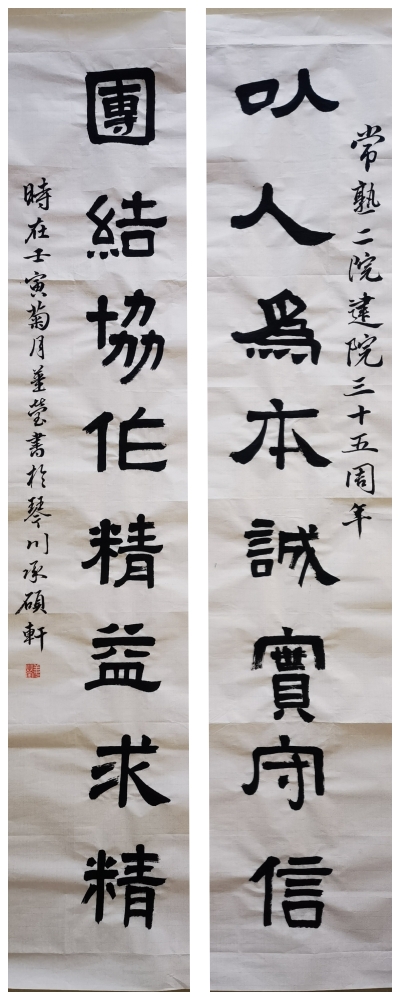 常熟二院建院三十五周年
以人為本誠實守信
團結協作精益求精
時在壬寅菊月董瑩書於琴川承碩軒